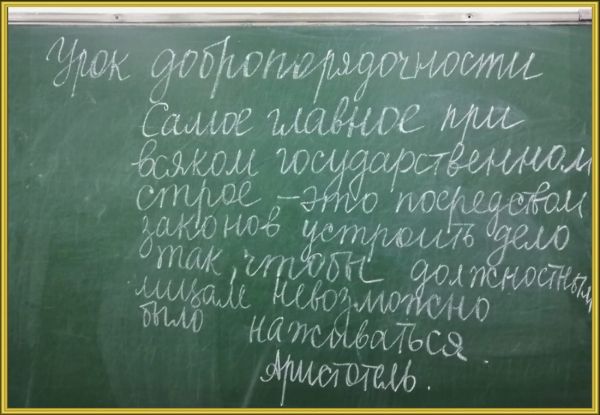 Урок добропорядочности
Самое главное при
всяком государственном
строе – это посредством
законов устроить дело
так, чтобы должностным
лицам невозможно
было наживаться.
Аристотель.